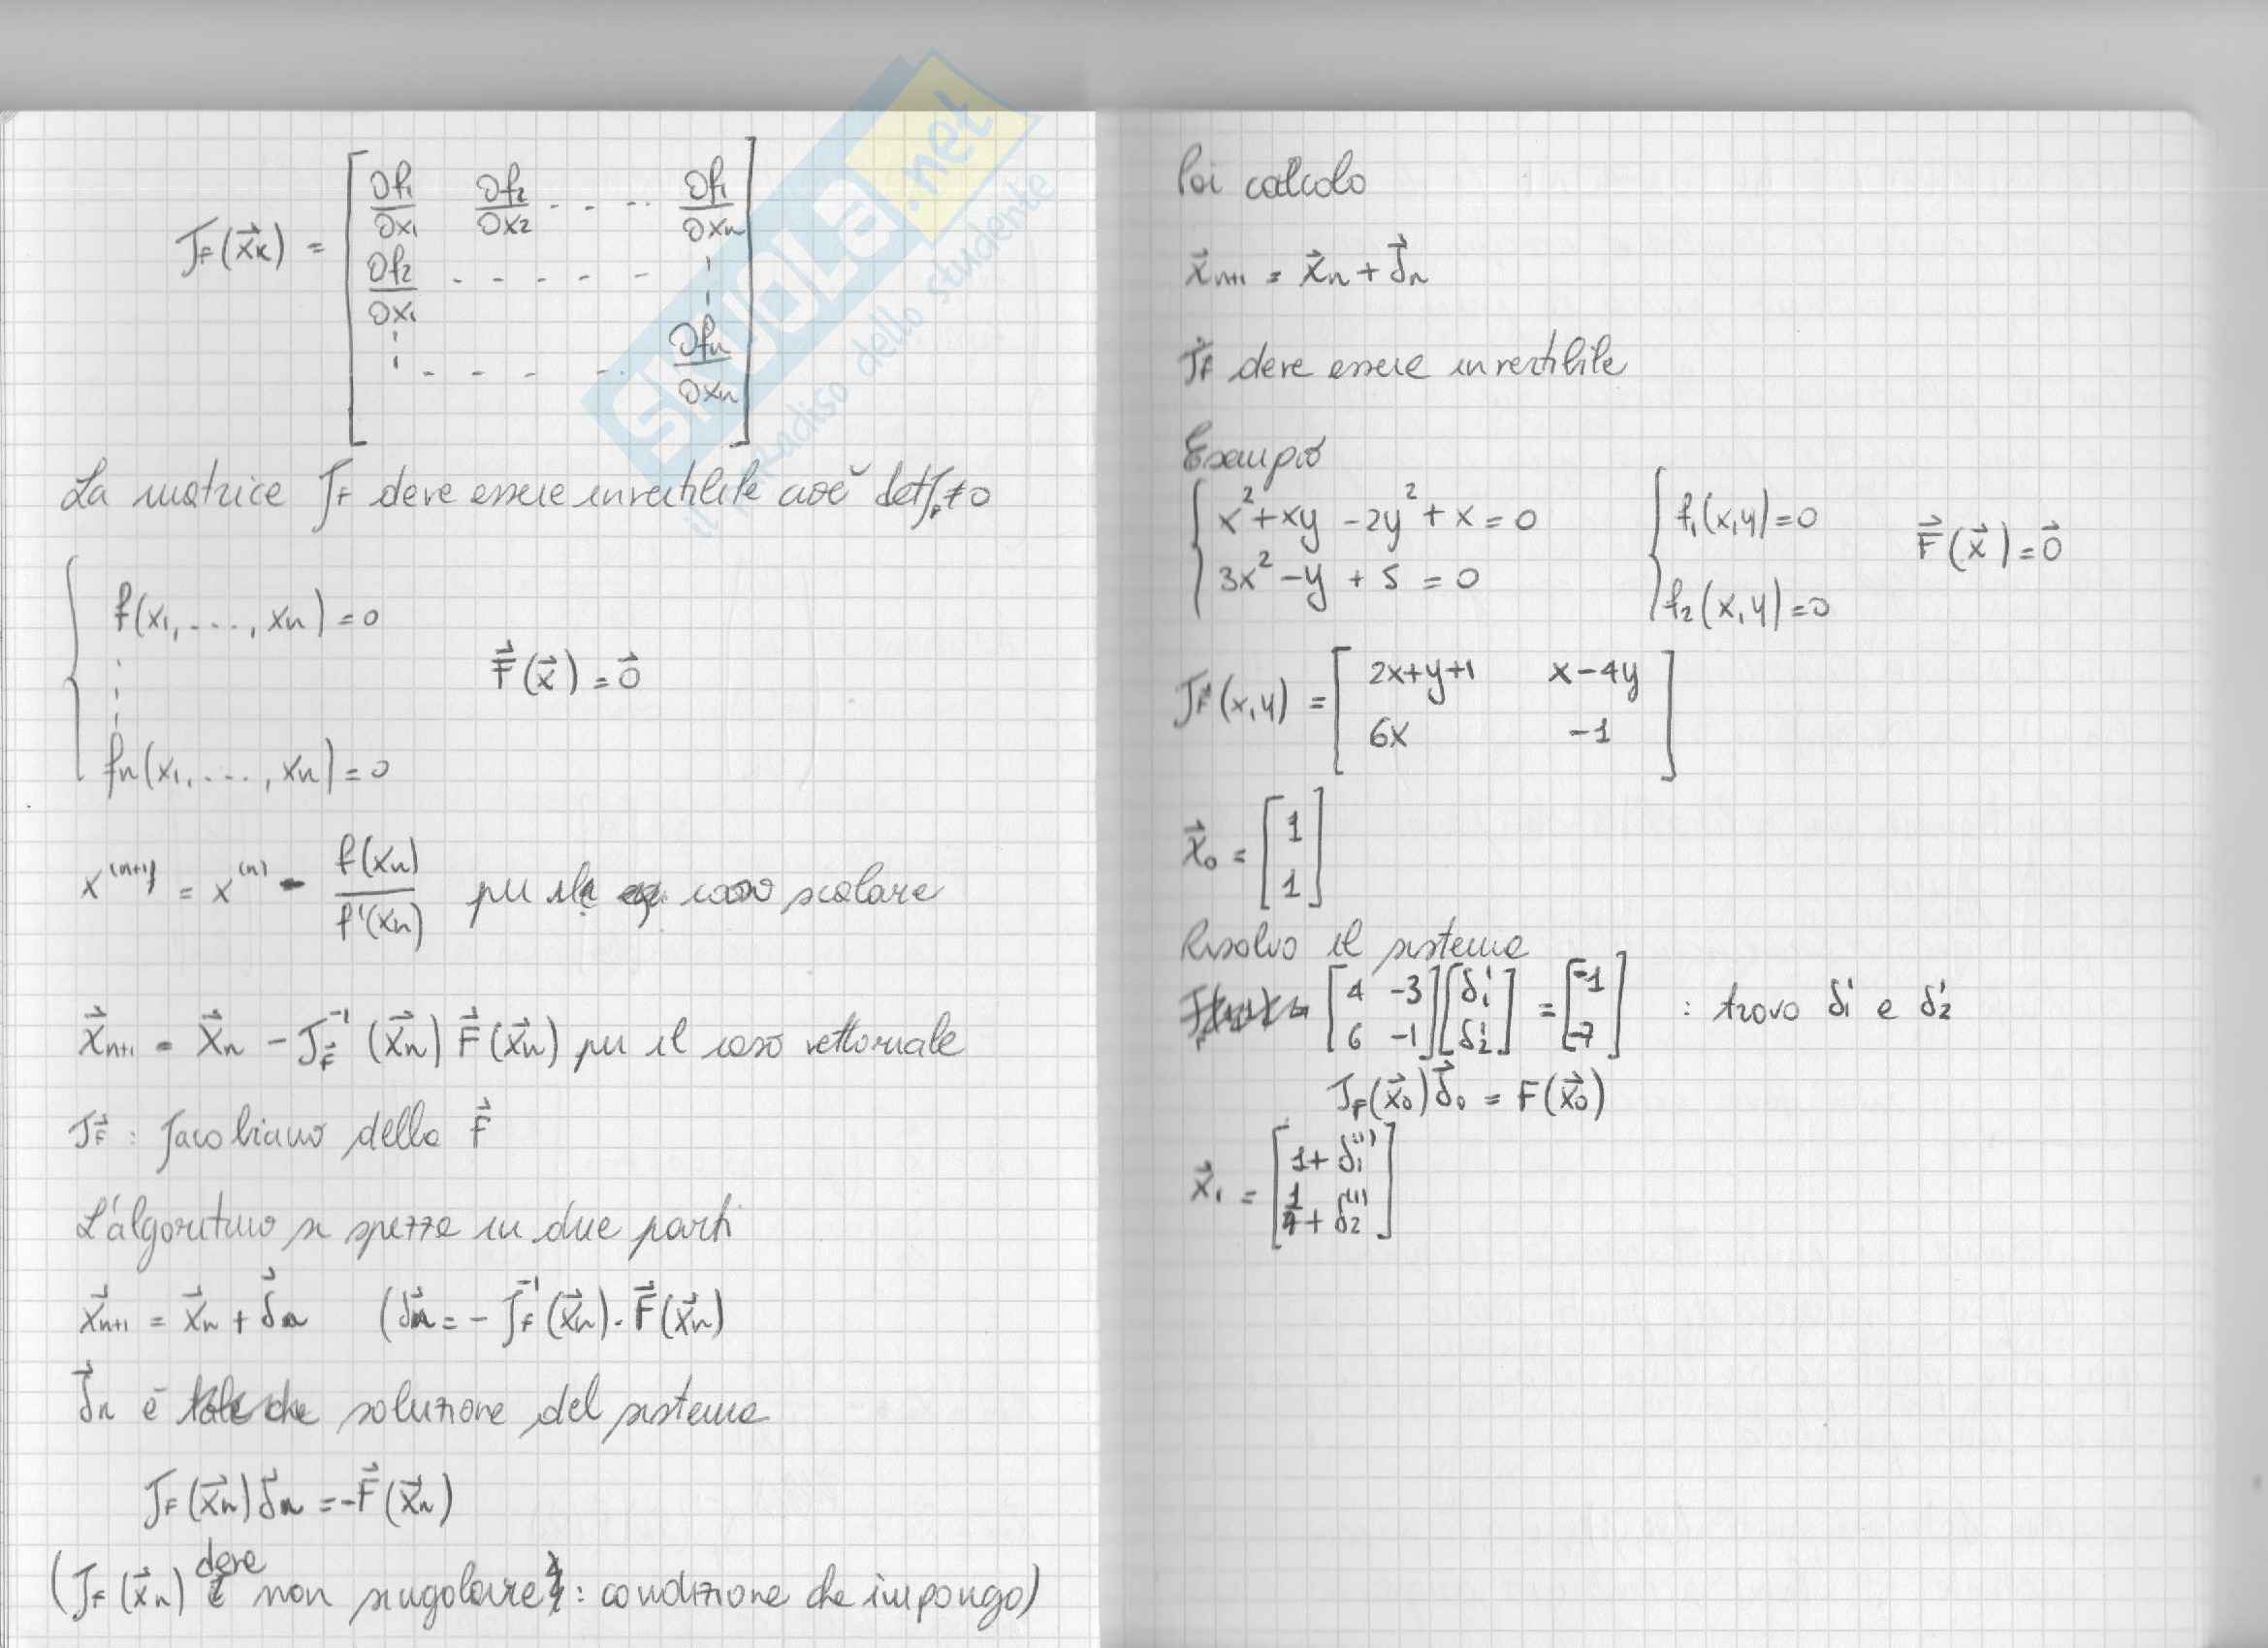 J_F(x⃗_k) = [ ∂f₁/∂x₁ ∂f₂/∂x₂ - - - - ∂f₁/∂xₙ
∂f₂/∂x₁ - - - - - ⋮
⋮ - - - - ∂fₙ/∂xₙ ]
La matrice J_F deve essere invertibile cioè det J_F ≠ 0
{ f(x₁, ..., xₙ) = 0
⋮
fₙ(x₁, ..., xₙ) = 0
F⃗(x⃗) = 0⃗
x⁽ⁿ⁺¹⁾ = x⁽ⁿ⁾ - f(xₙ)/f'(xₙ) per il caso scalare
x⃗ₙ₊₁ = x⃗ₙ - J_F⃗⁻¹(x⃗ₙ) F⃗(x⃗ₙ) per il caso vettoriale
J_F⃗ : Jacobiano della F⃗
L'algoritmo si spezza in due parti
x⃗ₙ₊₁ = x⃗ₙ + δ⃗ₙ (δ⃗ₙ = - J_F⁻¹(x⃗ₙ) · F⃗(x⃗ₙ)
δ⃗ₙ è soluzione del sistema
J_F(x⃗ₙ) δ⃗ₙ = -F⃗(x⃗ₙ)
(J_F(x⃗ₙ) deve non singolare : condizione che impongo)
Poi calcolo
x⃗ₙ₊₁ = x⃗ₙ + δ⃗ₙ
J_F deve essere invertibile
Esempio
{ x² + xy - 2y² + x = 0
3x² - y + 5 = 0
{ f₁(x,y) = 0
f₂(x,y) = 0
F⃗(x⃗) = 0⃗
J_F(x,y) = [ 2x+y+1 x-4y
6x -1 ]
x⃗₀ = [ 1
1 ]
Risolvo il sistema
[ 4 -3
6 -1 ] [ δ₁¹
δ₂¹ ] = [ -1
-7 ] : trovo δ₁¹ e δ₂¹
J_F(x⃗₀) δ⃗₀ = F(x⃗₀)
x⃗₁ = [ 1 + δ₁⁽¹⁾
1 + δ₂⁽¹⁾ ]
SKUOLA.net
il paradiso dello studente